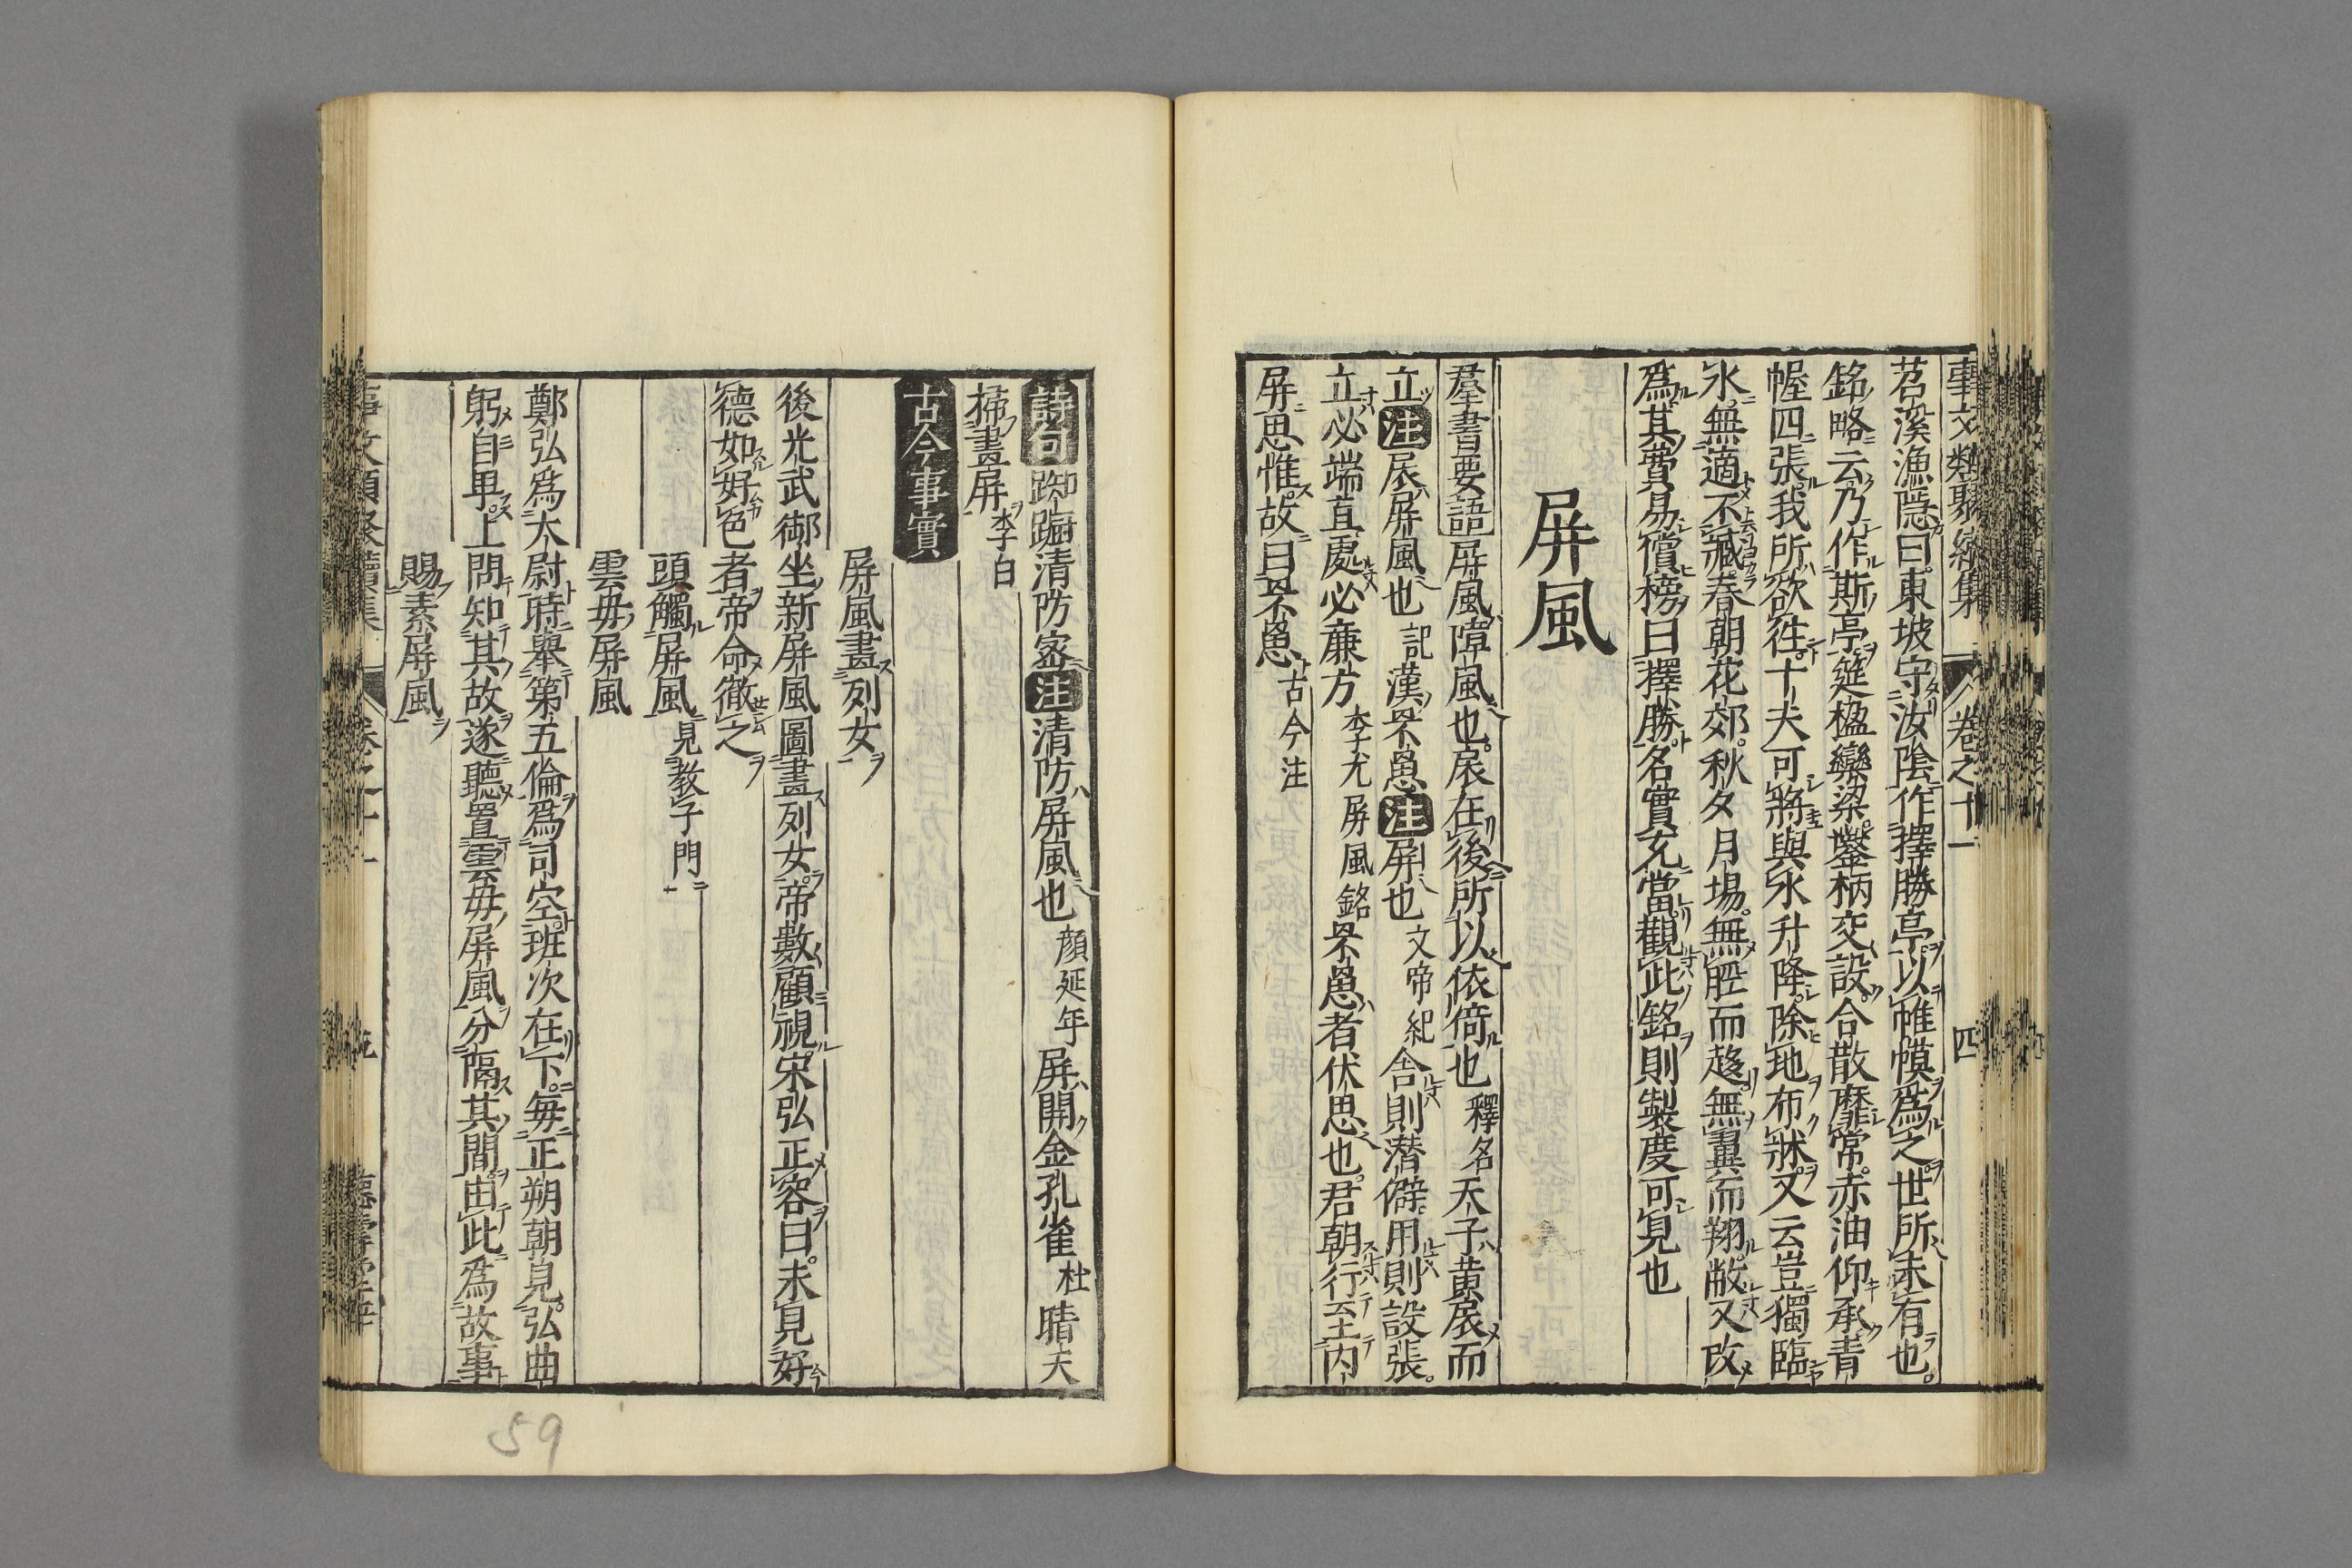 事文類聚續集 卷之十一 四
苕溪漁隱曰東坡守汝陰作擇勝亭以帷幙爲之世所未有也
銘略云乃作斯亭筵楹欒梁鑿枘交設合散靡常赤油仰承青
幄四張我所欲往十夫可將與水升降除地布牀又云豈獨臨
水無適不臧春朝花郊秋夕月場無脛而趍無翼而翔敝又改
爲其費易償榜曰擇勝名實允當觀此銘則製度可見也
屏風
羣書要語屏風障風也扆在後所以依倚也釋名天子黄扆而
立注扆屏風也記漢罘罳注屏也文帝紀舍則潜僻用則設張
立必端直處必廉方李尤屏風銘罘罳者伏思也君朝行至内
屏思惟故曰罘罳古今注
詩句踟躕清防宻注清防屏風也顔延年屏開金孔雀杜晴天
掃畫屏李白
古今事實
屏風畫列女
後光武御坐新屏風圖畫列女帝數顧視宋弘正容曰未見好
德如好色者帝命徹之
頭觸屏風見教子門
雲毋屏風
鄭弘爲太尉時舉第五倫爲司空班次在下每正朔朝見弘曲
躬自卑上問知其故遂聽置雲毋屏風分隔其間由此爲故事
賜素屏風
事文類聚續集 卷之十一
59